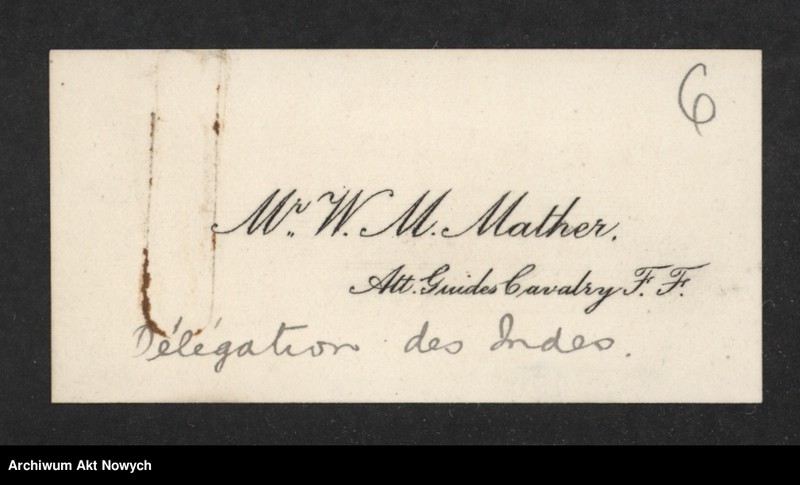 6
Mr. W. M. Mather.
Att. Guides Cavalry F. F.
Délégation des Indes.
Archiwum Akt Nowych